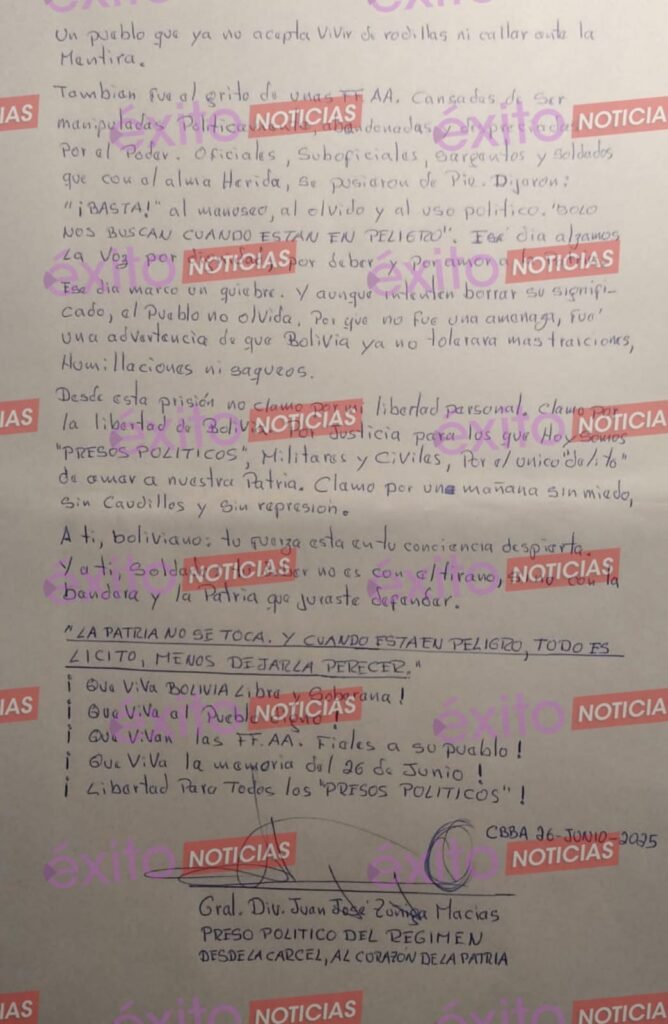 Un pueblo que ya no acepta Vivir de rodillas ni callar ante la
Mentira.
Tambien fue el grito de unas FF.AA. Cansadas de Ser
manipuladas Politicamente, abandonadas y despreciadas
Por el Poder. Oficiales, Suboficiales, Sargentos y Soldados
que con el alma Herida, se pusieron de Pie. Dijeron:
"¡BASTA!" al manoseo, al olvido y al uso politico. "SOLO
NOS BUSCAN CUANDO ESTAN EN PELIGRO". Ese dia alzamos
La Voz por dignidad, por deber y Por amor a la
Ese dia marco un quiebre. Y aunque intenten borrar su signifi-
cado, el Pueblo no olvida. Por que no fue una amenaza, fue'
una advertencia de que Bolivia ya no tolerara mas traiciones,
Humillaciones ni saqueos.
Desde esta prisión no clamo por mi libertad personal. Clamo por
la libertad de Bolivia. Por Justicia para los que Hoy somos
"PRESOS POLITICOS", Militares y Civiles, Por el unico "delito"
de amar a nuestra Patria. Clamo por una mañana sin miedo,
Sin Caudillos y Sin represión.
A ti, boliviano: tu fuerza esta en tu conciencia despierta.
Y a ti, Soldado: tu deber no es con el tirano, sino con la
bandera y la Patria que juraste defender.
"LA PATRIA NO SE TOCA. Y CUANDO ESTA EN PELIGRO, TODO ES
LICITO, MENOS DEJARLA PERECER."
¡ Que ViVa BOLIVIA Libre y Soberana !
¡ Que ViVa el Pueblo Digno !
¡ Que ViVan las FF.AA. Fieles a su pueblo !
¡ Que ViVa la memoria del 26 de Junio !
¡ Libertad Para Todos los "PRESOS POLITICOS" !
CBBA 26-JUNIO-2025
Gral. Div. Juan José Zúñiga Macias
PRESO POLITICO DEL REGIMEN
DESDE LA CARCEL, AL CORAZON DE LA PATRIA
éxito NOTICIAS